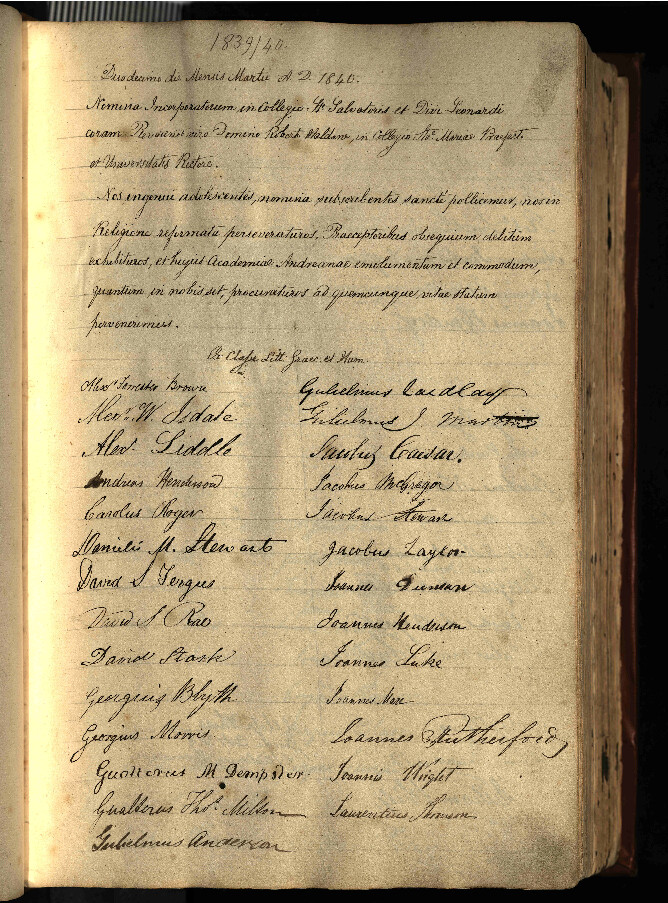 1839/40.
Duodecimo die Mensis Martii A. D. 1840.
Nomina Incorporatorum in Collegio Sti Salvatoris et Divi Leonardi
coram Reverendo viro Domino Robert Haldane, in Collegio Stae Mariae Praefecto
et Universitatis Rectore.
Nos ingenui adolescentes, nomina subscribentes sancte pollicemur, nos in
Religione reformata perseveraturos, Praeceptoribus obsequium debitum
exhibituros, et hujus Academiae Andreanae emolumentum et commodum,
quantum in nobis est, procuraturos ad quemcunque vitae statum
pervenerimus.
Ex Classe Litt. Graec. et Hum.
Alexr Forrester Brown
Alexr. W. Isdale
Alexr Liddle
Andreas Henderson
Carolus Roger
Danielis M. Stewart
David S Fergus
David S Rae
David Stark
Georgius Blyth
Georgius Morris
Gualterus M Dempster
Gualterus Thos. Milton
Gulielmus Anderson
Gulielmus Laidlaw
Gulielmus J Martin
Jacobus Caesar.
Jacobus McGregor
Jacobus Stewart
Jacobus Taylor
Joannes Duncan
Joannes Henderson
Joannes Luke
Joannes Marr
Joannes Rutherford
Joannis Wright
Laurentius Thomson